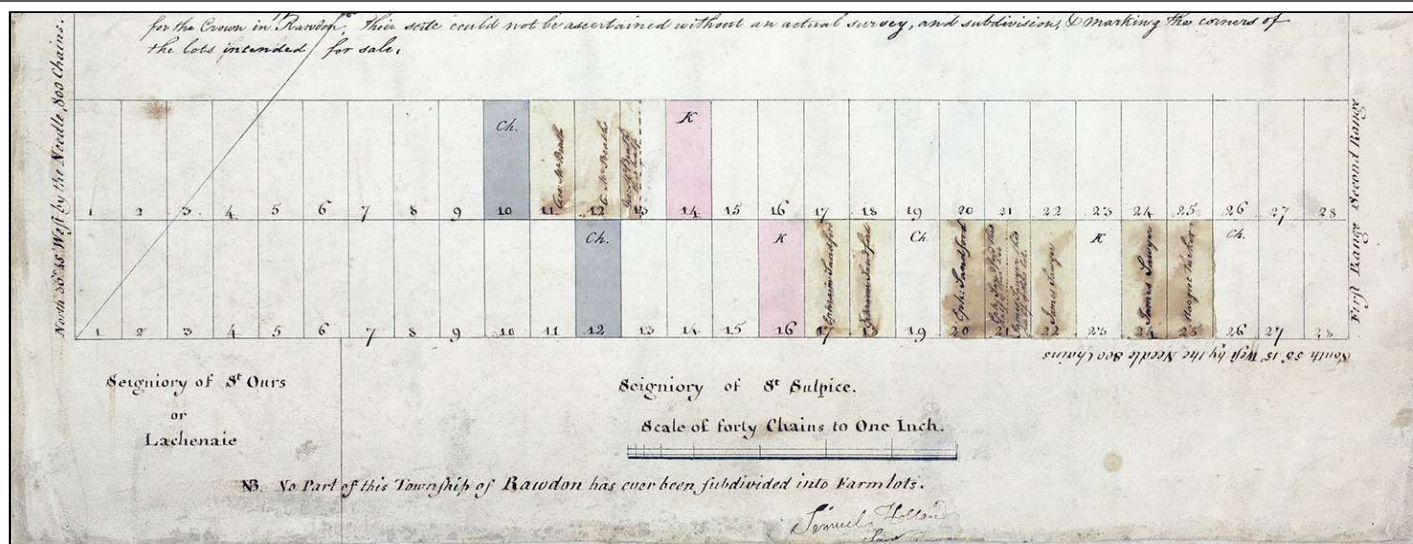 for the Crown in Rawdon, their scite could not be ascertained without an actual survey, and subdivision, & marking the corners of
the lots intended for sale.
North 36° 45' West by the Needle, 800 Chains.
Ch. K
1 2 3 4 5 6 7 8 9 10 11 12 13 14 15 16 17 18 19 20 21 22 23 24 25 26 27 28
Second Range
Ch. K Ephraim Sandford Ephraim Sandford Ch. Eph. Sandford James Sawyer K James Sawyer Ch.
1 2 3 4 5 6 7 8 9 10 11 12 13 14 15 16 17 18 19 20 21 22 23 24 25 26 27 28
First Range
South 53° 15' West by the Needle 800 Chains
Seigniory of St Ours
or
Lachenaie
Seigniory of St Sulpice.
Scale of forty Chains to One Inch.
NB. No Part of this Township of Rawdon has ever been subdivided into Farm lots.
Samuel Holland